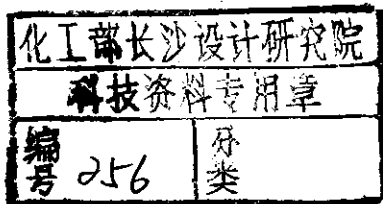 化工部长沙设计研究院
科技资料专用章
编号 256 分类